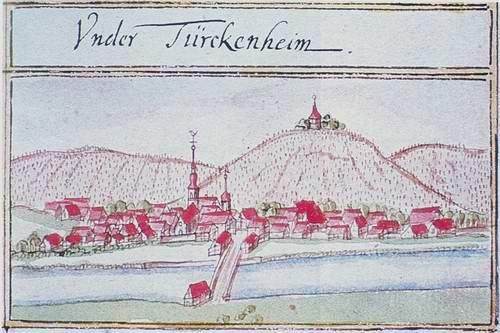 Vnder Türckenheim.